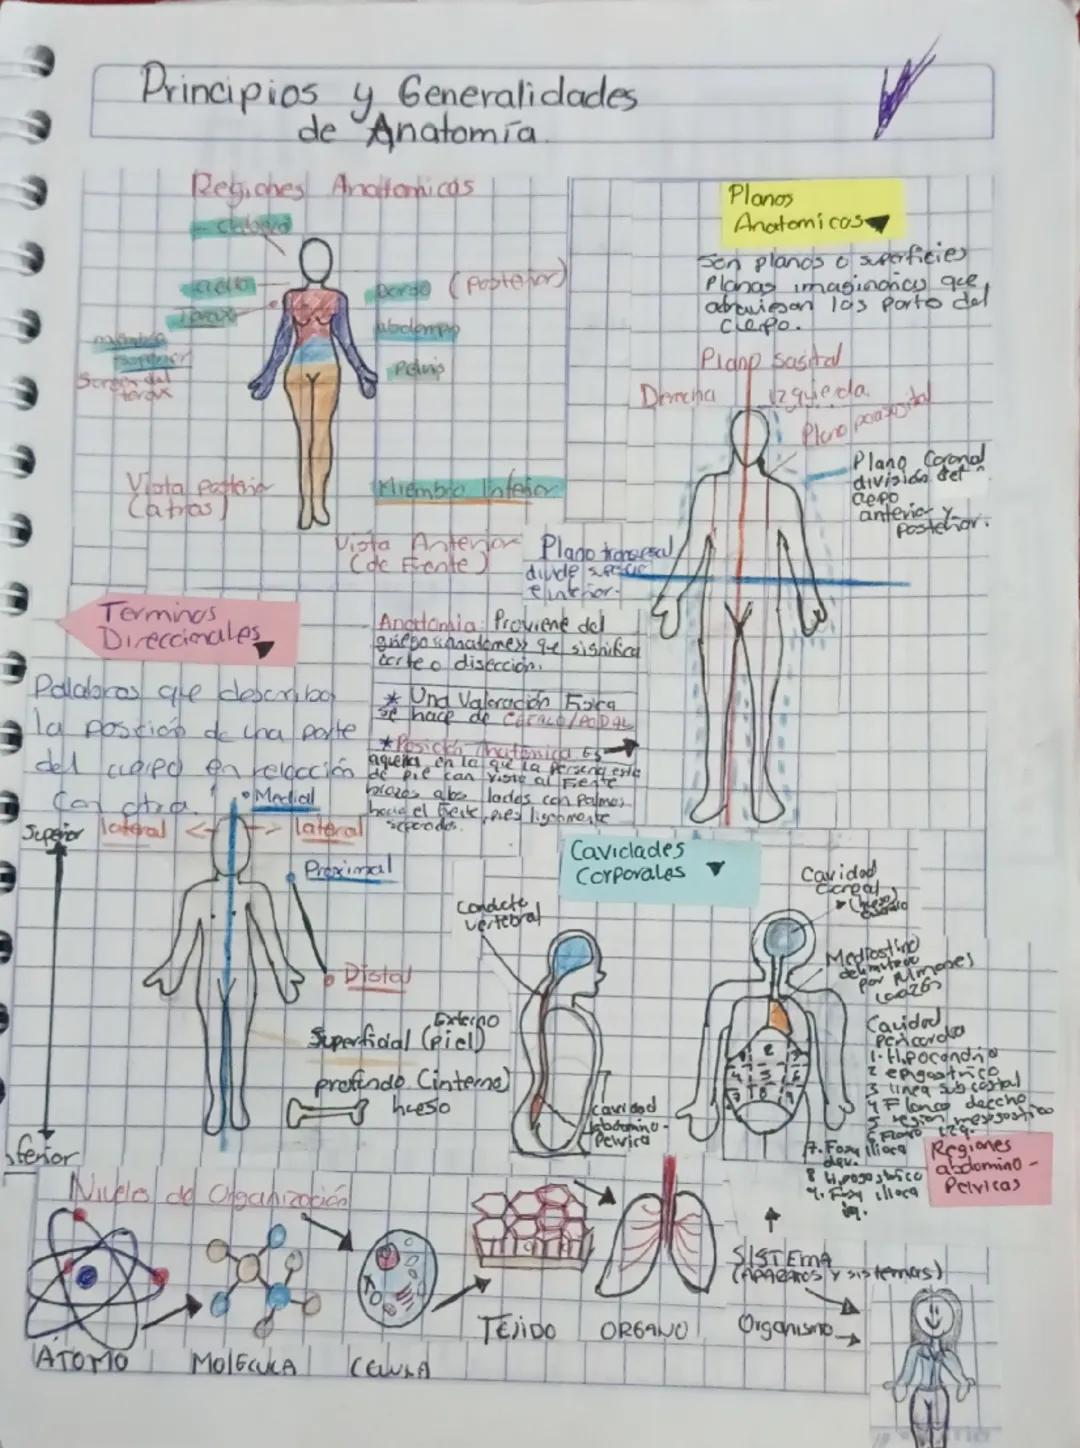 Principios y Generalidades
de Anatomía.
Regiones Anatomicas
cuello
torax
miembro
superior
Dorso (Posterior)
abdomen
Pelvis
Vista Posterior
(atras)
Miembro Inferior
Vista Anterior
(de Frente)
Planos
Anatomicos
Son planos o superficies
Planas imaginarias que
atraviesan las parts del
Cuerpo.
Plano Sagital
Derecha
izquierda.
Plano parasagital
Plano Coronal
división del
cuerpo
anterior y
Posterior.
Plano transversal
divide
e inferior.
Terminos
Direccionales
Palabras que describa
la posición de una parte
del cuerpo en relacción
Con otra.
Anattomia: Proviene del
griego «anatome» que significa
corte o disección.
* Una Valoración Fisica
se hace de
* Posición Anatomica Es
aquella en la que la Persona esta
de Pie con vista al Frente
brazos a los lados con Palmas
hacia el frente, pies ligeramente
separados.
Superior
lateral
Medial
lateral
Proximal
Distal
Externo
Superficial (piel)
profundo (interna)
hueso
Cavidades
Corporales
Conducto
vertebral
Cavidad
abdomino-
Pelvica
Cavidad
Mediastino
por Pulmones
Cavidad
Pericardia
1. Hipocondrio
2 epigastrico
3 linea subcostal
4 Flanco derecho
5 region mesogastico
6 Flanco izq.
7. Fosa iliaca
der.
8 Hipogastrico
9. Fosa iliaca
iq.
Regiones
abdomino-
Pelvicas
Niveles de Organización
ÁTOMO
MOLECULA
CELULA
TEJIDO
ORGANO
SISTEMA
(APARATOS y sistemas)
Organismo